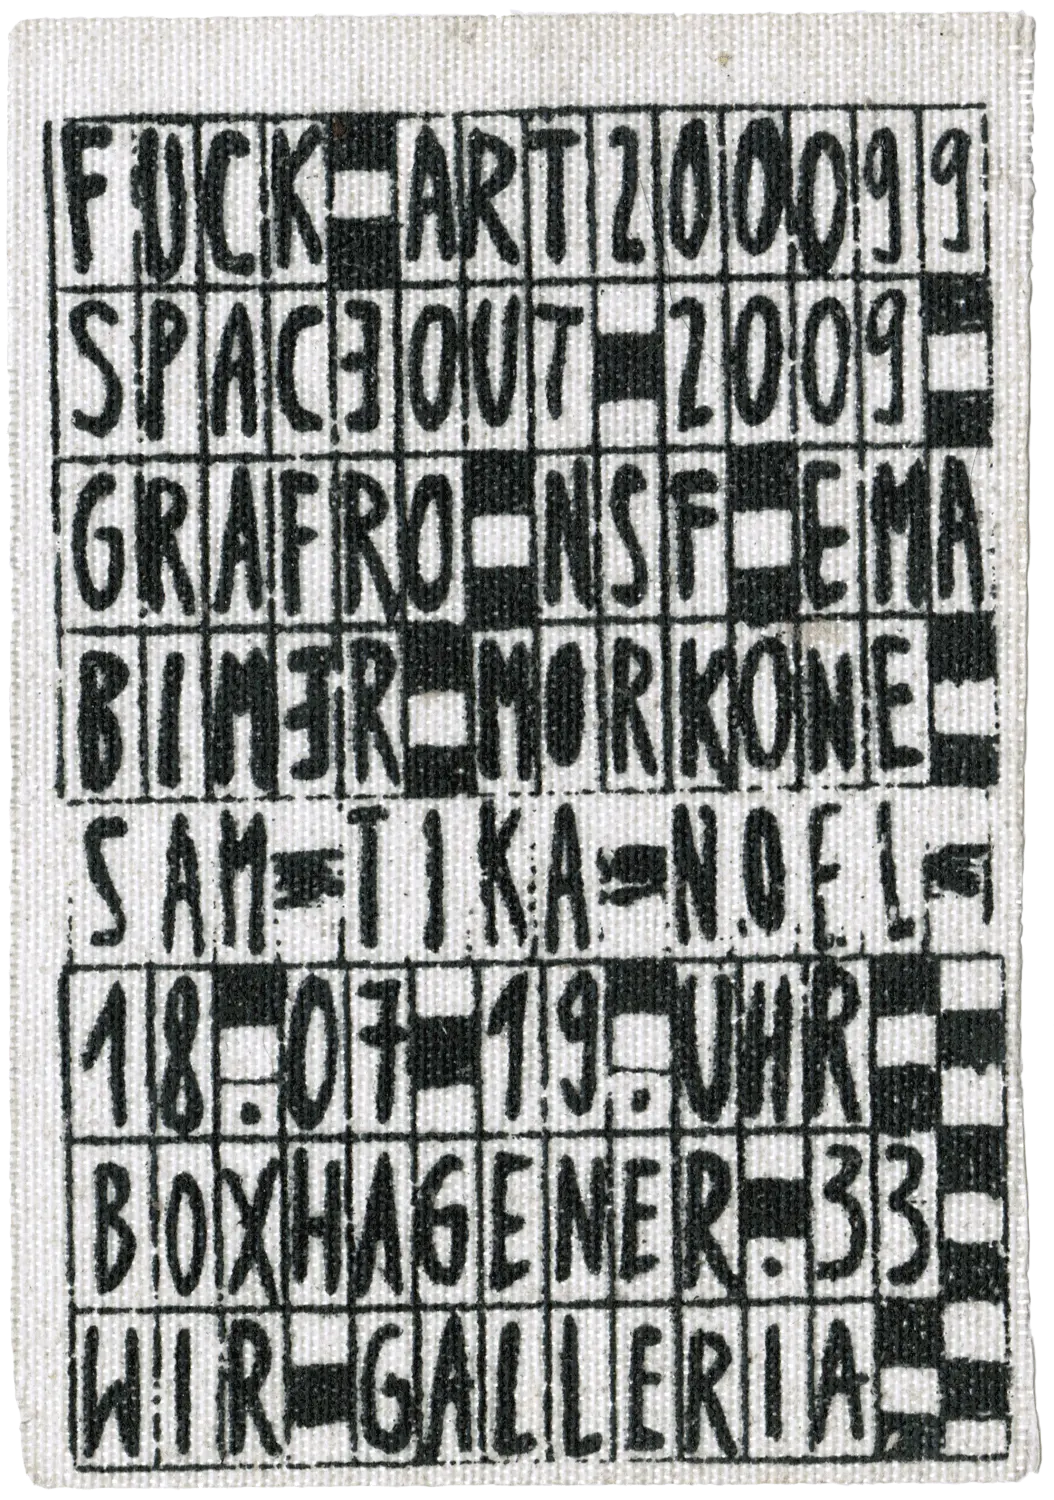 FUCK ART200099
SPACEOUT 2009
GRAFRO NSF EMA
BIMER MORKONE
SAM TIKA NOEL
18.07 19.UHR
BOXHAGENER.33
WIR GALLERIA